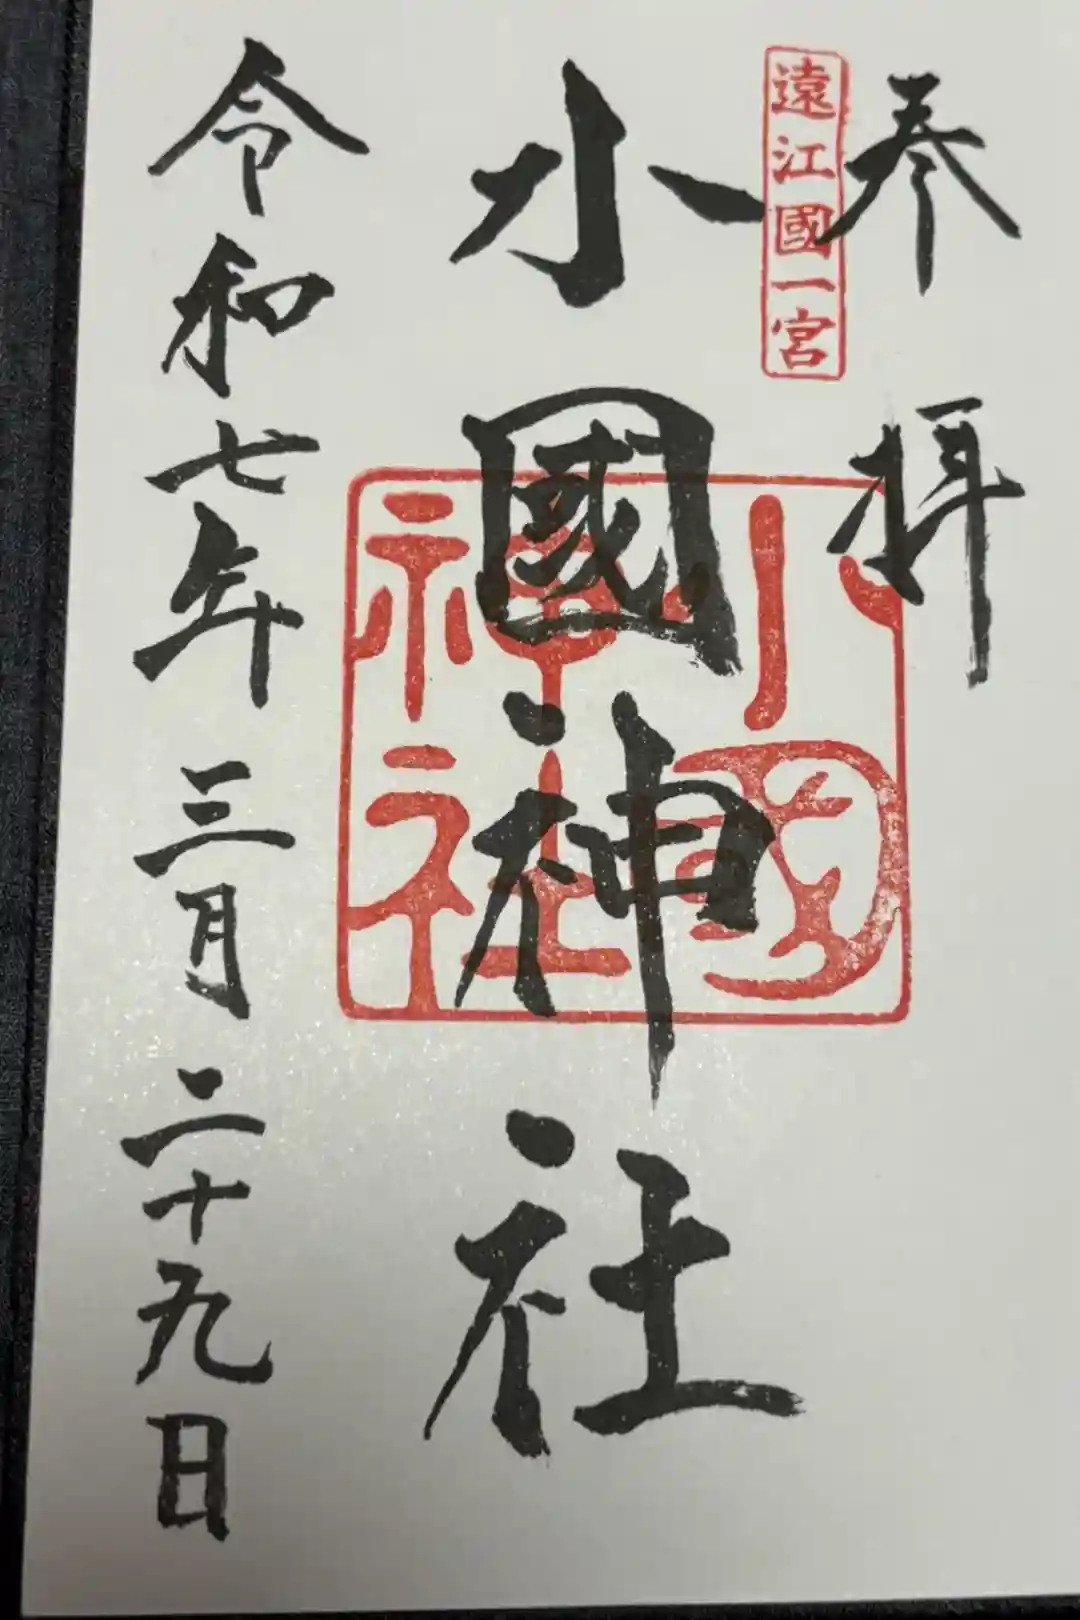 奉拝
遠江國一宮
小國神社
小國
神社
令和七年三月二十九日